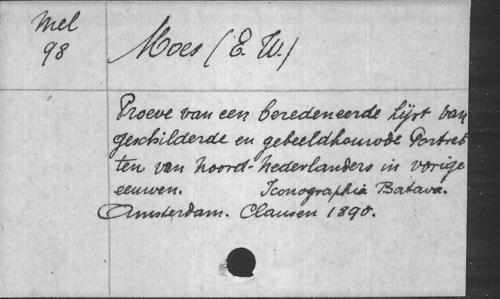 Mel
98
Moes (E. W.)
Proeve van een beredeneerde lijst van
geschilderde en gebeeldhouwde Portret
ten van Noord-Nederlanders in vorige
eeuwen. Iconographia Batava.
Amsterdam. Clausen 1890.